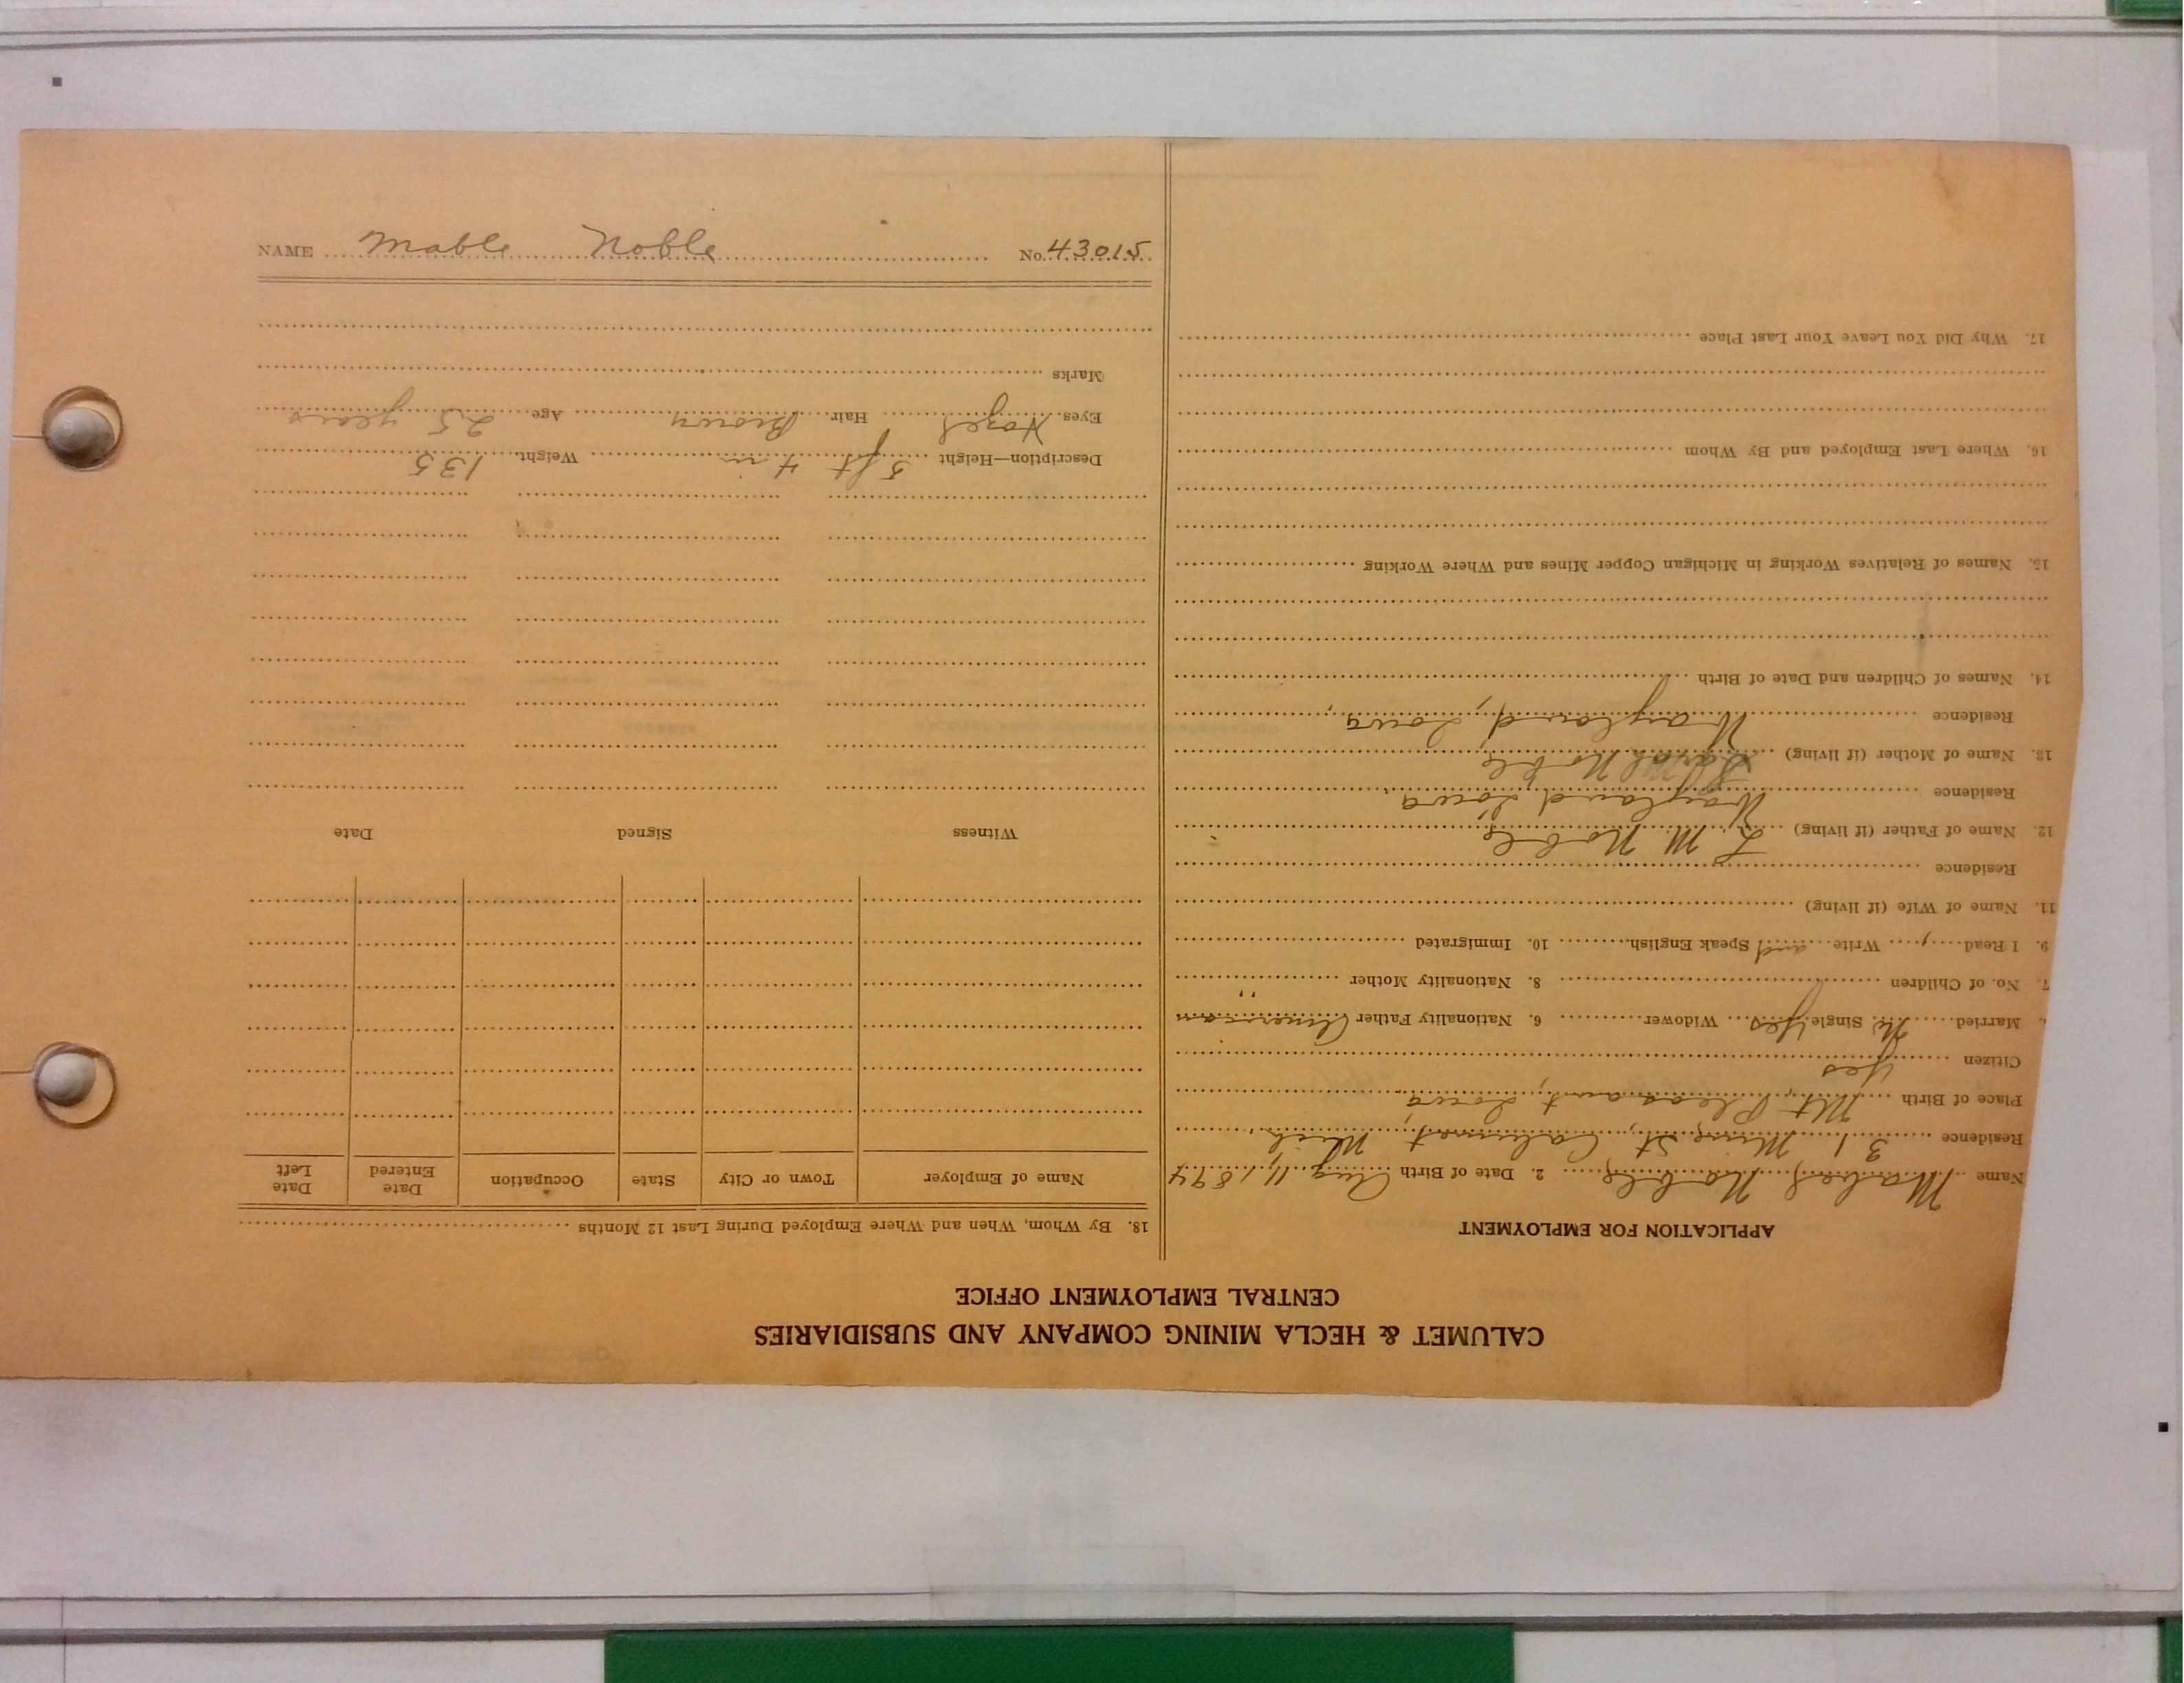 CALUMET & HECLA MINING COMPANY AND SUBSIDIARIES
CENTRAL EMPLOYMENT OFFICE
APPLICATION FOR EMPLOYMENT
Name Mabel Noble 2. Date of Birth Aug 11, 1894
Residence 31 Mine St, Calumet Mich.
Place of Birth Mt Pleasant, Iowa
Citizen Yes
Married No Single Yes Widower 6. Nationality Father American
7. No. of Children 8. Nationality Mother "
9. I Read , Write and Speak English 10. Immigrated
11. Name of Wife (if living)
Residence
12. Name of Father (if living) L M Noble
Residence Wayland Iowa
13. Name of Mother (if living) Sarah Noble
Residence Wayland, Iowa,
14. Names of Children and Date of Birth
15. Names of Relatives Working in Michigan Copper Mines and Where Working
16. Where Last Employed and By Whom
17. Why Did You Leave Your Last Place
18. By Whom, When and Where Employed During Last 12 Months
Name of Employer Town or City State Occupation Date Entered Date Left
Witness Signed Date
Description—Height 5 ft 4 in Weight 135
Eyes Hazel Hair Brown Age 25 years
Marks
NAME Mable Noble No. 43015